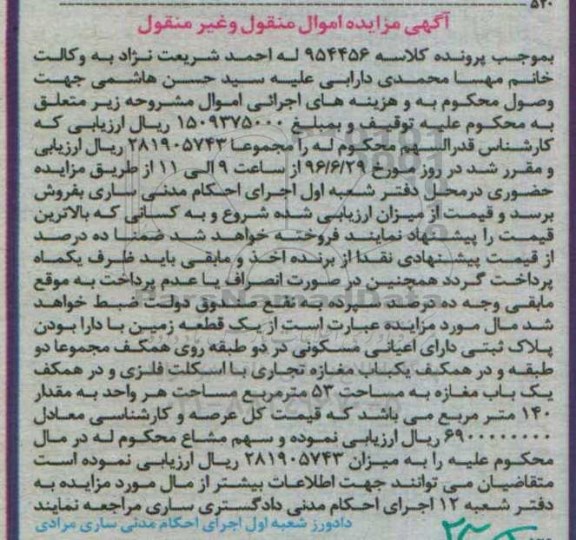 ۵۲۰
آگهی مزایده اموال منقول وغیر منقول
بموجب پرونده کلاسه ۹۵۴۴۵۶ له احمد شریعت نژاد به وکالت
خانم مهسا محمدی دارابی علیه سید حسن هاشمی جهت
وصول محکوم به و هزینه های اجرائی اموال مشروحه زیر متعلق
به محکوم علیه توقیف و بمبلغ ۱۵۰۹۳۷۵۰۰۰ ریال ارزیابی که
کارشناس قدرالسهم محکوم له را مجموعا ۲۸۱۹۰۵۷۴۳ ریال ارزیابی
و مقرر شد در روز مورخ ۹۶/۶/۲۹ از ساعت ۹ الی ۱۱ از طریق مزایده
حضوری درمحل دفتر شعبه اول اجرای احکام مدنی ساری بفروش
برسد و قیمت از میزان ارزیابی شده شروع و به کسانی که بالاترین
قیمت را پیشنهاد نمایند فروخته خواهد شد ضمنا ده درصد
از قیمت پیشنهادی نقدا از برنده اخذ و مابقی باید ظرف یکماه
پرداخت گردد همچنین در صورت انصراف یا عدم پرداخت به موقع
مابقی وجه ده درصد سپرده به نفع صندوق دولت ضبط خواهد
شد مال مورد مزایده عبارت است از یک قطعه زمین با دارا بودن
پلاک ثبتی دارای اعیانی مسکونی در دو طبقه روی همکف مجموعا دو
طبقه و در همکف یکباب مغازه تجاری با اسکلت فلزی و در همکف
یک باب مغازه به مساحت ۵۳ مترمربع مساحت هر واحد به مقدار
۱۴۰ متر مربع می باشد که قیمت کل عرصه و کارشناسی معادل
۶۹۰۰۰۰۰۰۰۰ ریال ارزیابی نموده و سهم مشاع محکوم له در مال
محکوم علیه را به میزان ۲۸۱۹۰۵۷۴۳ ریال ارزیابی نموده است
متقاضیان می توانند جهت اطلاعات بیشتر از مال مورد مزایده به
دفتر شعبه ۱۲ اجرای احکام مدنی دادگستری ساری مراجعه نمایند
دادورز شعبه اول اجرای احکام مدنی ساری مرادی